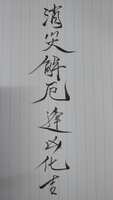 消灾解厄逢凶化吉